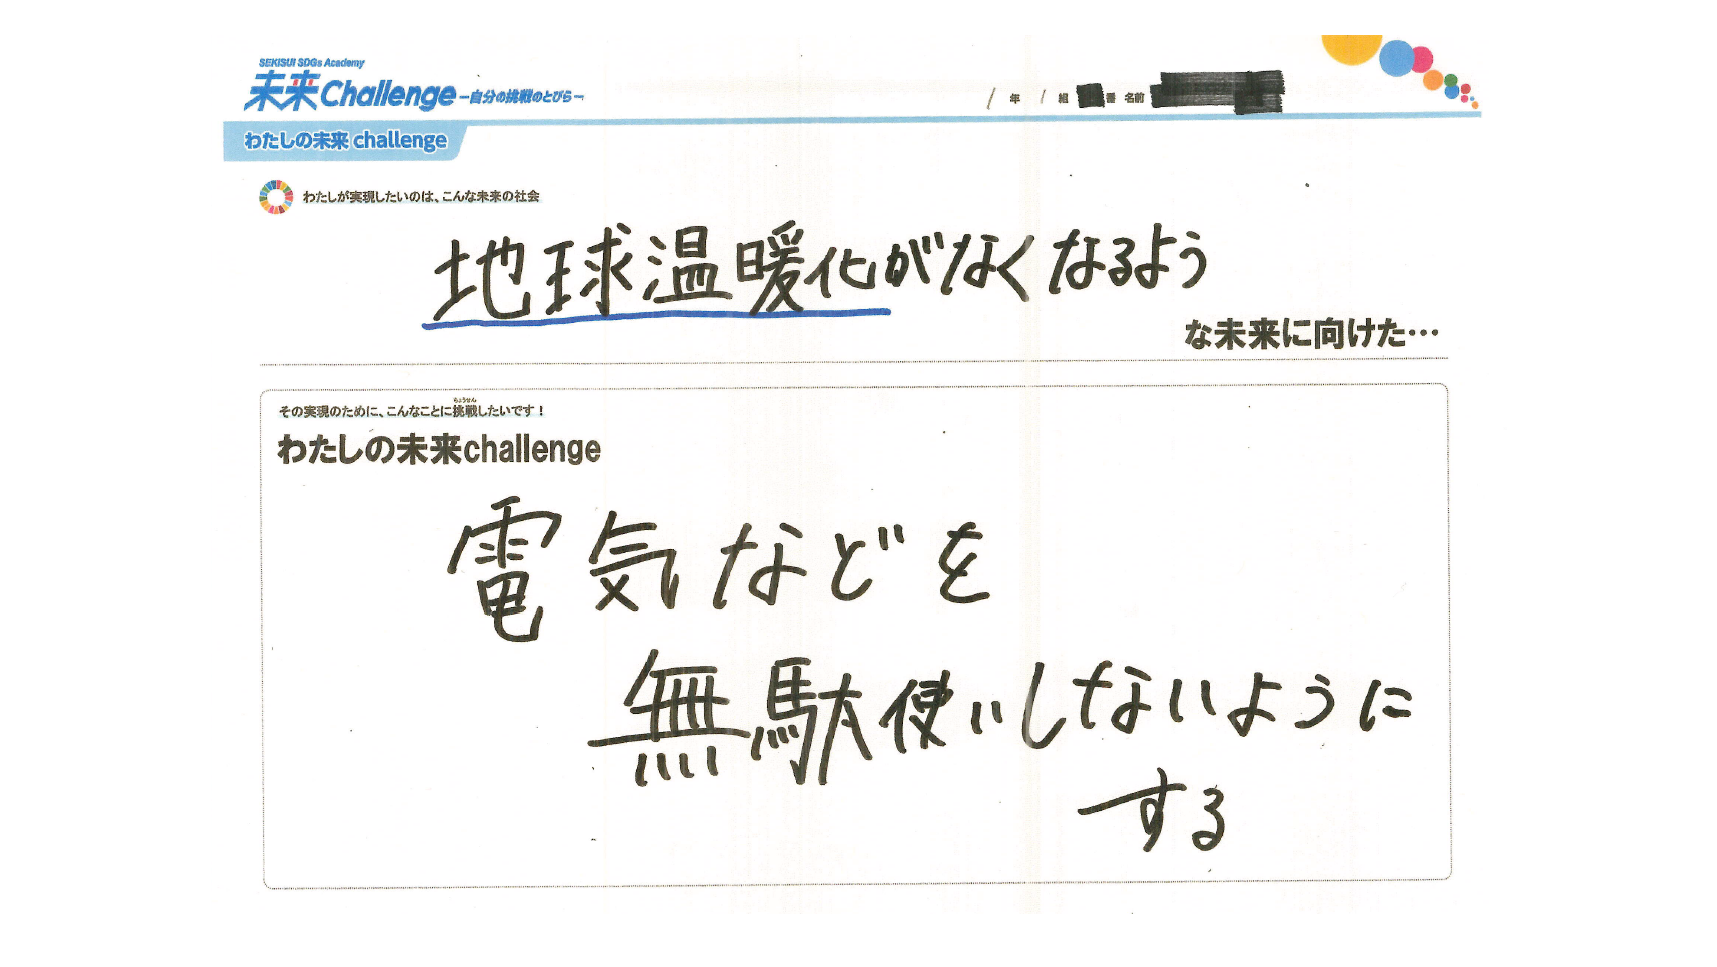 SEKISUI SDGs Academy
未来Challenge －自分の挑戦のとびら－
1 年 1 組 番 名前
わたしの未来 challenge
わたしが実現したいのは、こんな未来の社会
地球温暖化がなくなるよう
な未来に向けた…
ちょうせん
その実現のために、こんなことに挑戦したいです！
わたしの未来challenge
電気などを
無駄使いしないように
する